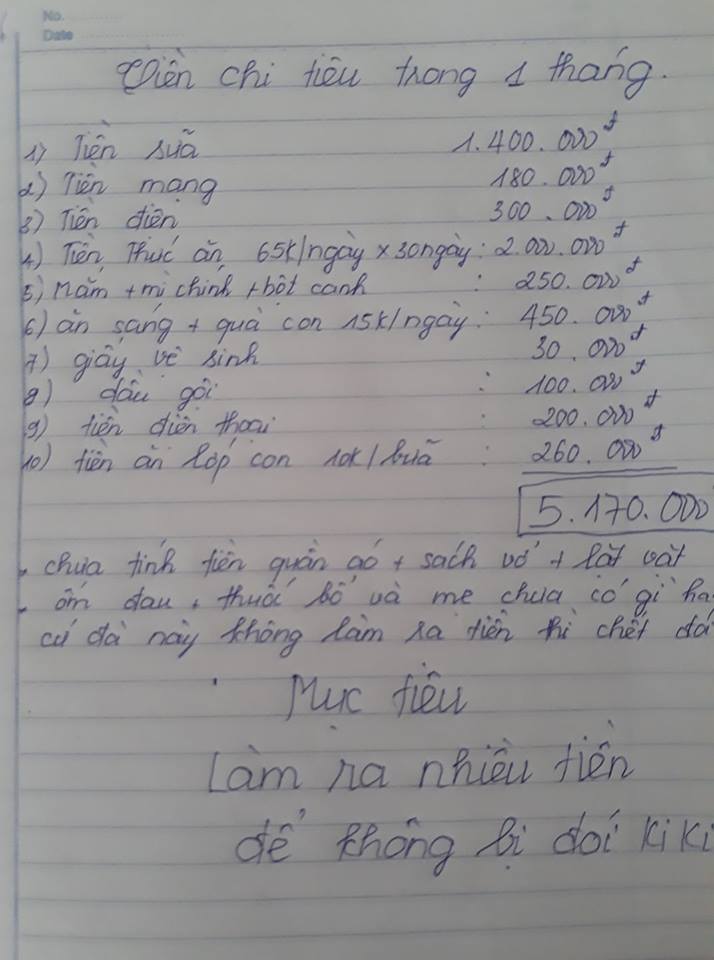 No.
Date
Tiền chi tiêu trong 1 tháng.
1) Tiền sữa 1.400.000đ
2) Tiền mạng 180.000đ
3) Tiền điện 300.000đ
4) Tiền Thức ăn 65k/ngày x 30ngày: 2.000.000đ
5) Mắm + mì chính + bột canh : 250.000đ
6) ăn sáng + quà con 15k/ngày: 450.000đ
7) giấy vệ sinh 30.000đ
8) dầu gội : 100.000đ
9) tiền điện thoại : 200.000đ
10) tiền ăn lớp con 10k/bữa : 260.000đ
5.170.000
. chưa tính tiền quần áo + sách vở + lặt vặt
. ốm đau, thuốc bố và mẹ chưa có gì
cứ đà này không làm ra tiền thì chết đói
Mục tiêu
Làm ra nhiều tiền
để không bị đói ki ki